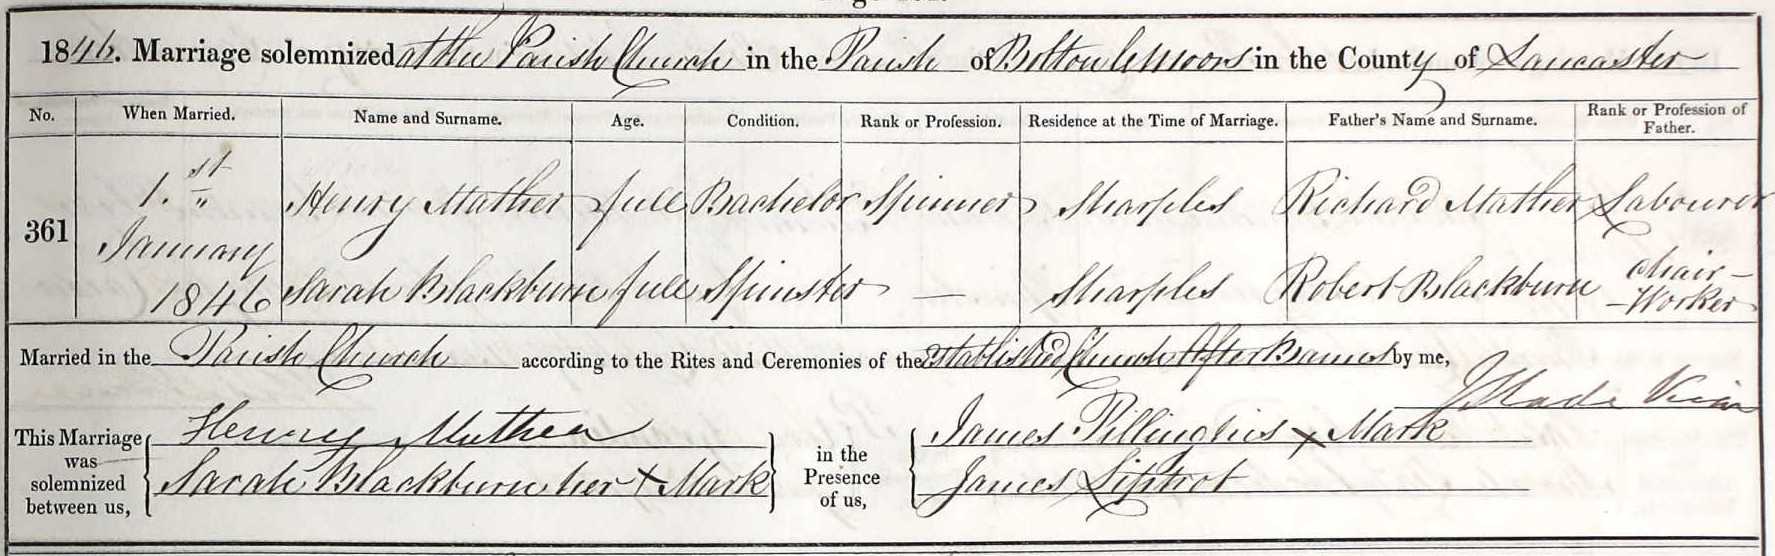 1846. Marriage solemnized at the Parish Church in the Parish of Bolton le Moors in the County of Lancaster
No. When Married. Name and Surname. Age. Condition. Rank or Profession. Residence at the Time of Marriage. Father's Name and Surname. Rank or Profession of Father.
361 1.st January 1846 Henry Mather full Bachelor Spinner Sharples Richard Mather Labourer
Sarah Blackburn full Spinster — Sharples Robert Blackburn Chair-Worker
Married in the Parish Church according to the Rites and Ceremonies of the Established Church After Banns by me,
Slade Vicar
This Marriage was solemnized between us, Henry Mather in the Presence of us, James Pilling his x Mark
Sarah Blackburn her x Mark James Liptrot